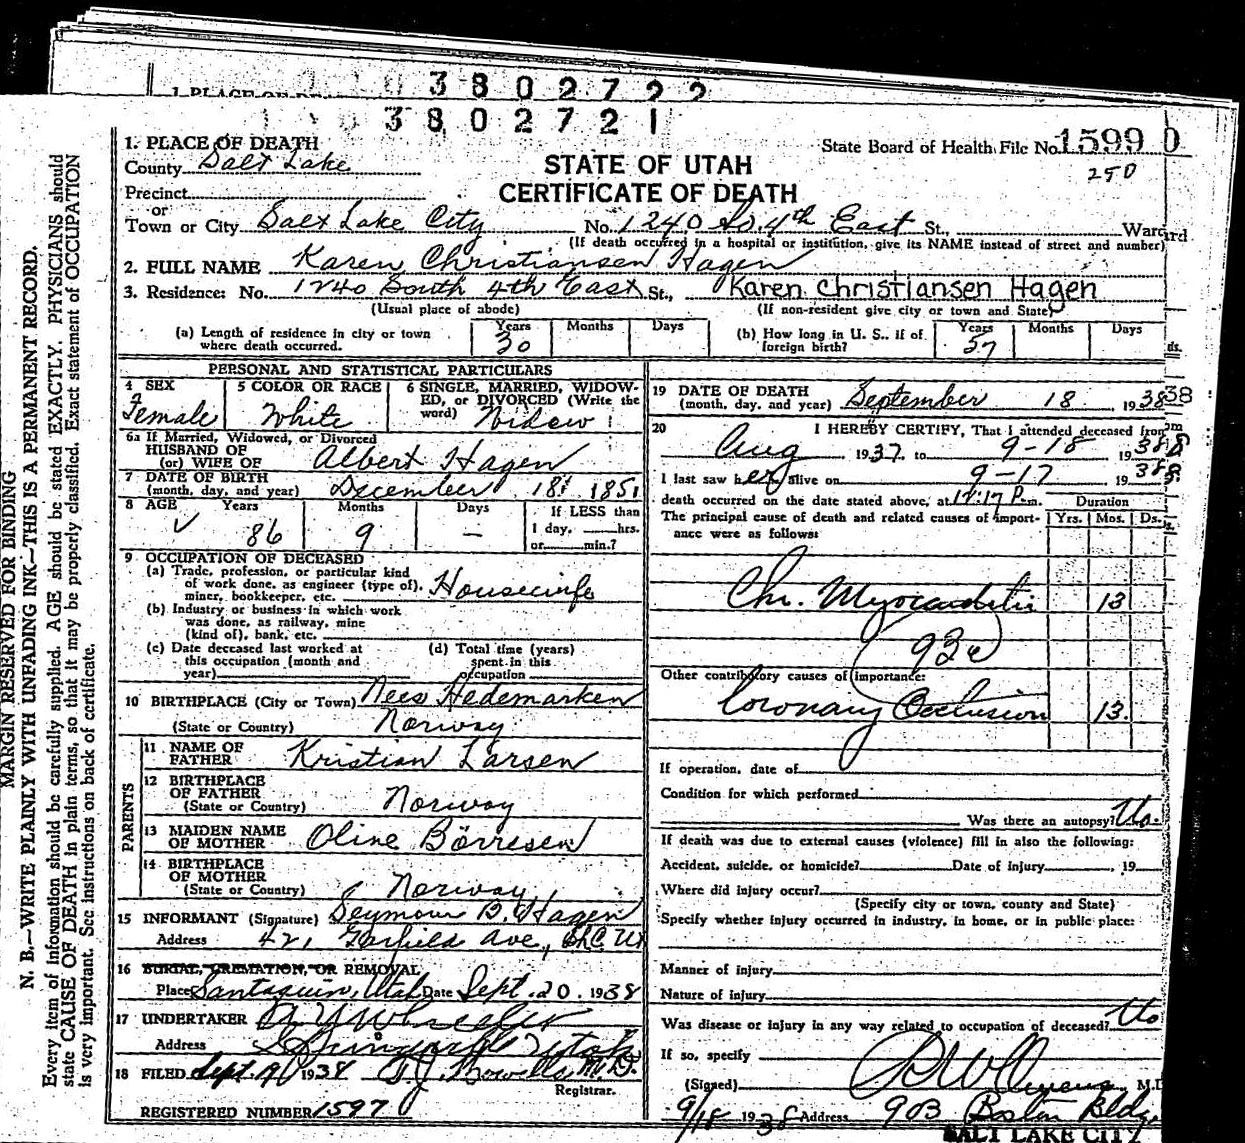 3802722
1 PLACE OF DE
3802721
1. PLACE OF DEATH
County Salt Lake
Precinct
or
Town or City Salt Lake City No. 1240 So. 4th East St., Ward
State Board of Health File No. 1599 0
250
STATE OF UTAH
CERTIFICATE OF DEATH
(If death occurred in a hospital or institution, give its NAME instead of street and number)
2. FULL NAME Karen Christiansen Hagen
3. Residence: No. 1240 South 4th East St., Karen Christiansen Hagen
(Usual place of abode) (If non-resident give city or town and State)
(a) Length of residence in city or town where death occurred. Years 30 Months Days
(b) How long in U. S., if of foreign birth? Years 57 Months Days
PERSONAL AND STATISTICAL PARTICULARS
4 SEX Female
5 COLOR OR RACE White
6 SINGLE, MARRIED, WIDOWED, or DIVORCED (Write the word) Widow
6a If Married, Widowed, or Divorced
HUSBAND OF
(or) WIFE OF Albert Hagen
7 DATE OF BIRTH
(month, day, and year) December 18, 1851
8 AGE Years 86 Months 9 Days –
If LESS than
1 day, hrs.
or min.?
9 OCCUPATION OF DECEASED
(a) Trade, profession, or particular kind
of work done, as engineer (type of),
miner, bookkeeper, etc. Housewife
(b) Industry or business in which work
was done, as railway, mine
(kind of), bank, etc.
(c) Date deceased last worked at
this occupation (month and
year)
(d) Total time (years)
spent in this
occupation
10 BIRTHPLACE (City or Town) Nees Hedemarken
(State or Country) Norway
PARENTS
11 NAME OF
FATHER Kristian Larsen
12 BIRTHPLACE
OF FATHER
(State or Country) Norway
13 MAIDEN NAME
OF MOTHER Oline Börresen
14 BIRTHPLACE
OF MOTHER
(State or Country) Norway
15 INFORMANT (Signature) Seymour B. Hagen
Address 421 Garfield Ave., SLC. Ut
16 BURIAL, CREMATION, OR REMOVAL
Place Santaquin, Utah Date Sept. 20. 1938
17 UNDERTAKER A Y Wheeler
Address Springville Utah
18 FILED Sept. 19 1938 T. J. Howells M. D.
Registrar.
REGISTERED NUMBER 1597
19 DATE OF DEATH
(month, day, and year) September 18, 1938
20 I HEREBY CERTIFY, That I attended deceased from
Aug 1937, to 9-18 1938
I last saw her alive on 9-17 1938
death occurred on the date stated above, at 12:17 P.m.
Duration
The principal cause of death and related causes of importance were as follows: Yrs. Mos. Ds.
Chr. Myocarditis 13
93c
Other contributory causes of importance:
Coronary Occlusion 13.
If operation, date of
Condition for which performed
Was there an autopsy? No.
If death was due to external causes (violence) fill in also the following:
Accident, suicide, or homicide? Date of injury, 19
Where did injury occur?
(Specify city or town, county and State)
Specify whether injury occurred in industry, in home, or in public place:
Manner of injury
Nature of injury
Was disease or injury in any way related to occupation of deceased? No
If so, specify
(Signed) M.D
9/18 1938 Address 903 Boston Bldg.
SALT LAKE CITY
MARGIN RESERVED FOR BINDING
N. B.—WRITE PLAINLY WITH UNFADING INK—THIS IS A PERMANENT RECORD.
Every item of information should be carefully supplied. AGE should be stated EXACTLY. PHYSICIANS should
state CAUSE OF DEATH in plain terms, so that it may be properly classified. Exact statement of OCCUPATION
is very important. See instructions on back of certificate.